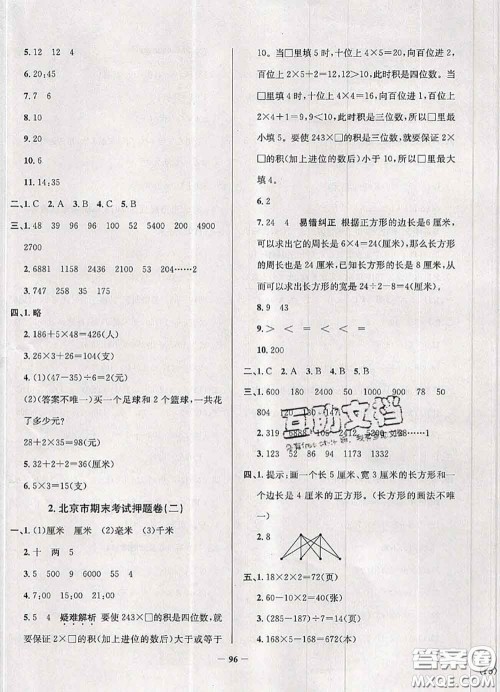 5. 12　12　4
6. 20:45
7. 7　6
8. 9
10. 6
11. 14:35
二、1. C　2. A　3. B　4. C　5. B
三、1. 48　39　96　96　100　5200　4900
2700
2. 6881　1158　2430　53　204……2
3. 747　832　548　140
四、1. 略
2. 186+5×48=426(人)
3. 26×3+26=104(支)
4. (1)(47-5)÷6=7(元)
(2)(答案不唯一)买一个足球和2个篮球,一共花
了多少元?
28+2×35=98(元)
5. 32÷2+34=50(支)
2. 北京市期末考试押题卷(二)
一、1. (1)厘米　厘米　(2)毫米　(3)千米
2. 十　两　5
3. 5　500　9　4
4. 7:00　18:00
5. 5　4　疑难解析　要使243×□的积是四位数,就
要保证2×□的积(加上进位的数后)大于或等于
10。当□里填5时,十位上4×5=20,向百位进2,
百位上2×5+2=12,12>10,此时积是四位数。当
□里填4时,十位上4×4=16,向百位进1,百位上
2×4+1=9,9<10,此时积是三位数,所以,□里最
小填5。要使243×□的积是三位数,就要保证2×
□的积(加上进位的数后)小于10,所以,□里最大
填4。
6. 2
7. 24　4　易错纠正　根据正方形的边长是6厘米,
可以求出它的周长是6×4=24(厘米),那么长方形
的周长也就是24厘米,又已知长方形的长是8厘
米,可以求出长方形的宽是24÷2-8=4(厘米)。
8. 9　43
9. >　<　=　<　=　=
10. 200
二、1. C　2. A　3. A　4. B　5. C
三、1. 600　180　2400　50　1000　900　78　50
804　1200
2. 319
四、1. 提示:画一个长5厘米、宽3厘米的长方形和一
个边长是4厘米的正方形。(长方形的画法不唯
一)
2. 8
五、1. 18×2×2=72(页)
2. 18×2+4=40(张)
3. 168×5-168=672(本)
— 96 —
互助文档
答案圈
MXQE.COM